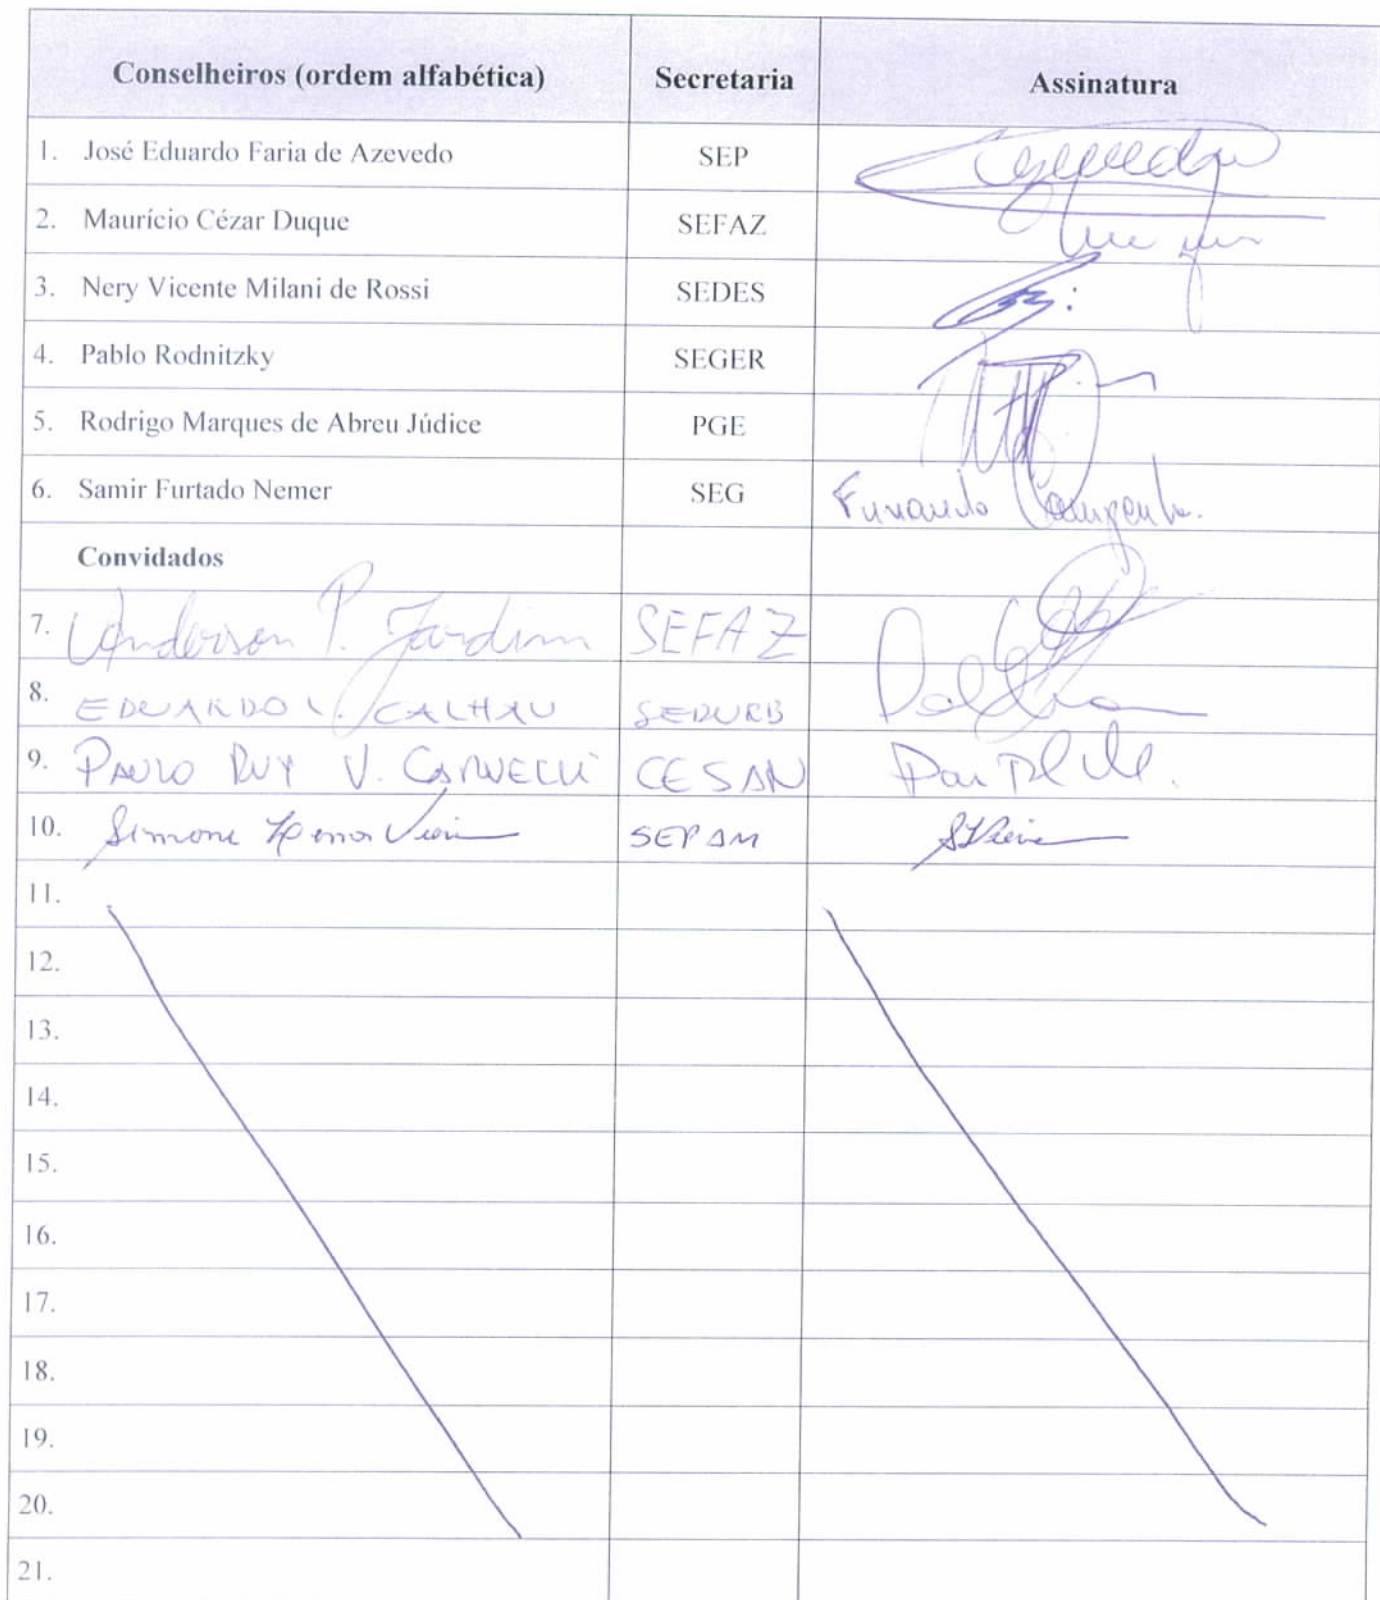 Conselheiros (ordem alfabética) Secretaria Assinatura
1. José Eduardo Faria de Azevedo SEP
2. Maurício Cézar Duque SEFAZ
3. Nery Vicente Milani de Rossi SEDES
4. Pablo Rodnitzky SEGER
5. Rodrigo Marques de Abreu Júdice PGE
6. Samir Furtado Nemer SEG
Convidados
7. Anderson P. Jardim SEFAZ
8. EDUARDO L. CALHAU SEDURB
9. PAULO RUY V. CARNELLI CESAN
10. Simone SEPAM SVieira
11.
12.
13.
14.
15.
16.
17.
18.
19.
20.
21.